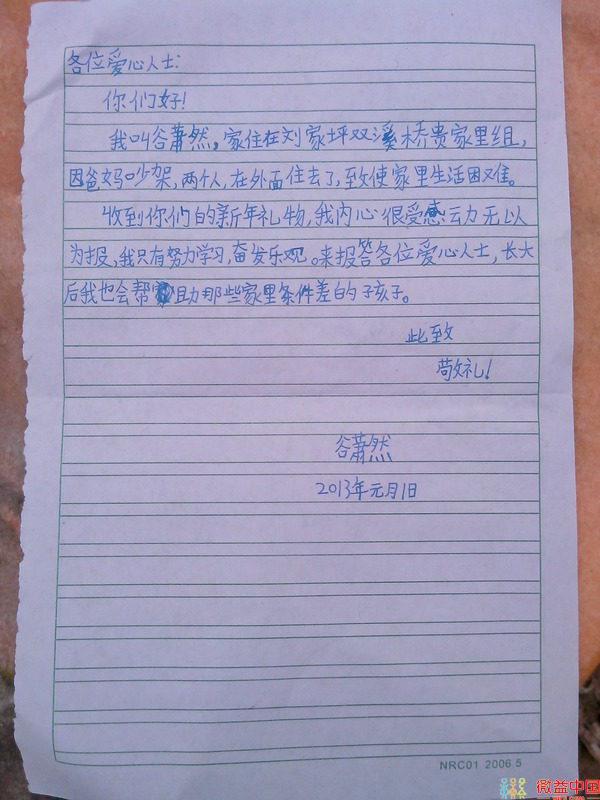 各位爱心人士:
你们好!
我叫谷萧然,家住在刘家坪双溪桥贵家里组,
因爸妈吵架,两个人,在外面住去了,致使家里生活困难。
收到你们的新年礼物,我内心很受感动无以
为报,我只有努力学习,奋发乐观。来报答各位爱心人士,长大
后我也会帮助那些家里条件差的孩子。
此致
敬礼!
谷萧然
2013年元月1日
NRC01 2006.5
微益中国